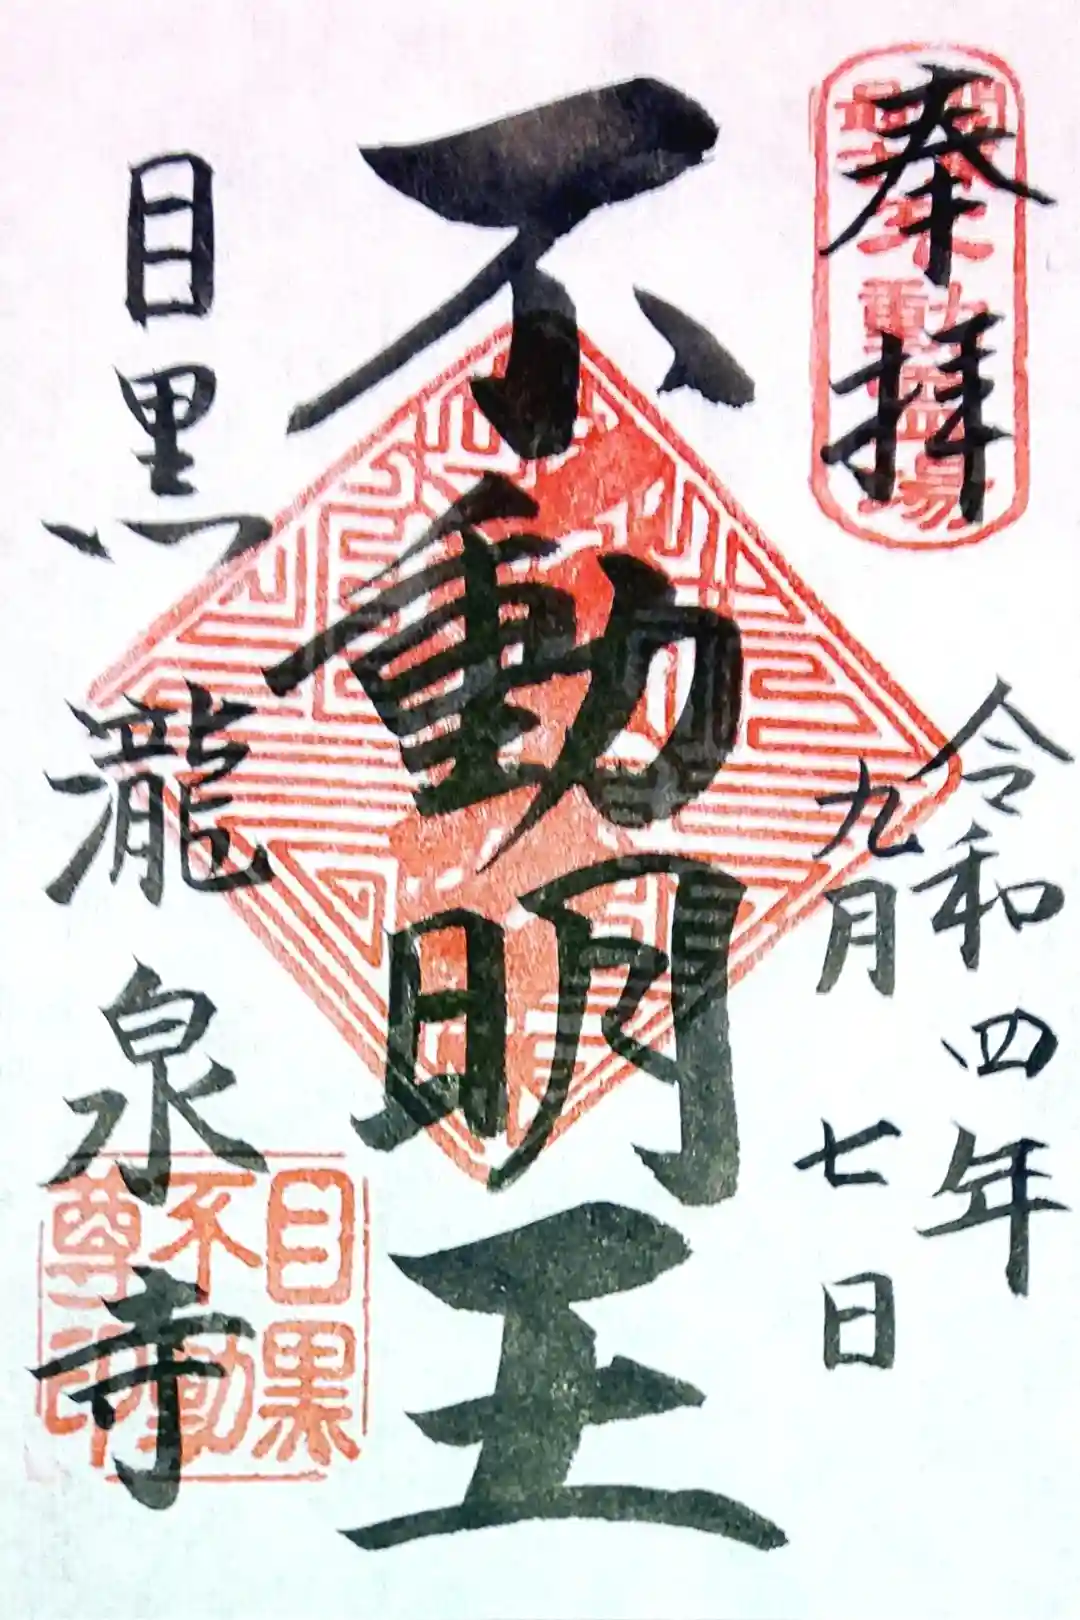 奉拝
令和四年
九月七日
不動明王
目黒
瀧泉寺
目黒
不動
尊印